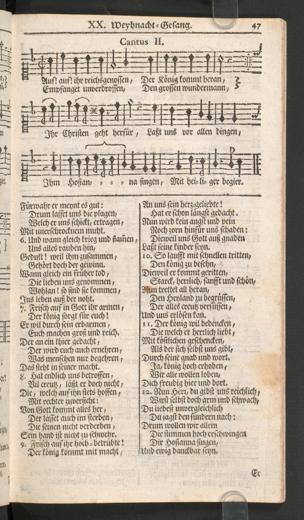 XX. Weyhnacht-Gesang. 47
Cantus II.
Auf! auf! ihr reichsgenossen, Der König kommt heran,
Empfanget unverdrossen, Den grossen wundermann,
Ihr Christen geht herfür, Laßt uns vor allen dingen,
Ihm Hosian- - - na singen, Mit hei-li-ger begier.
Fürwahr er meynt es gut:
Drum lasset uns die plagen,
Welch er uns schickt, ertragen,
Mit unerschrocknem muht.
6. Und wann gleich krieg und
Uns alles rauben hin,
Gedult! weil ihm zusammen,
Gehört doch der gewinn.
Wann gleich ein früher tod,
Die lieben uns genommen,
Wohlan! so sind sie kommen,
Ins leben auß der noht.
7. Frisch auf in Gott ihr armen,
Der könig sorgt für euch!
Er wil durch sein erbarmen,
Euch machen groß und reich.
Der an ein thier gedacht,
Der wird auch euch ernehren,
Was menschen nur begehren,
Das steht in seiner macht.
8. Hat endlich uns betroffen,
Vil creutz, läßt er doch nicht,
Die, welch auf ihn stets hoffen,
Mit rechter zuversicht:
Von Gott kommt alles her,
Der lasset auch im sterben,
Die seinen nicht verderben,
Sein hand ist nicht zu schwehr.
9. Frisch auf ihr hoch-betrübt!
Der könig kommt mit macht,
An uns sein hertz-geliebte!
Hat er schon längst gedacht.
Nun wird kein angst und pein
Noch zorn hinfür uns schaden:
Dieweil uns Gott auß gnaden
Läßt seine kinder seyn.
10. So laufft mit schnellen tritten,
Den könig zu besehn,
Dieweil er kommt geritten,
Starck, herrlich, sanfft und schön,
Nun trettet all heran,
Den Heyland zu begrüssen,
Der alles creutz versüssen,
Und uns erlösen kan.
11. Der könig wil bedencken,
Die welch er hertzlich liebt,
Mit köstlichen geschencken,
Als der sich selbst uns gibt,
Durch seine gnad und wort.
Ja, könig hoch erhoben,
Wir alle wollen loben,
Dich freudig hier und dort.
12. Nun Herr, du gibst uns reichlich,
Wirst selbst doch arm und schwach,
Du liebest unvergleichlich
Du jagst den sündern nach:
Drum wollen wir allein
Die stimmen hoch erschwingen
Dir Hosianna singen,
Und ewig danckbar seyn.